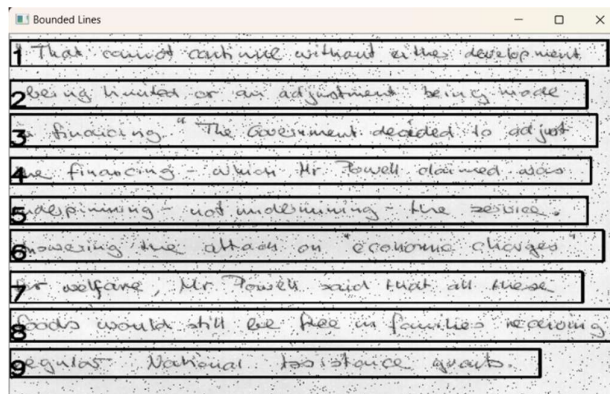 Bounded Lines
1 " That cannot continue without either development
2 being limited or an adjustment being made
3 in financing. " The Government decided to adjust
4 the financing - which Mr. Powell claimed was
5 underpinning - not undermining - the service.
6 Answering the attack on "economic charges"
7 for welfare, Mr. Powell said that all these
8 foods would still be free in families receiving
9 regular National Assistance grants.